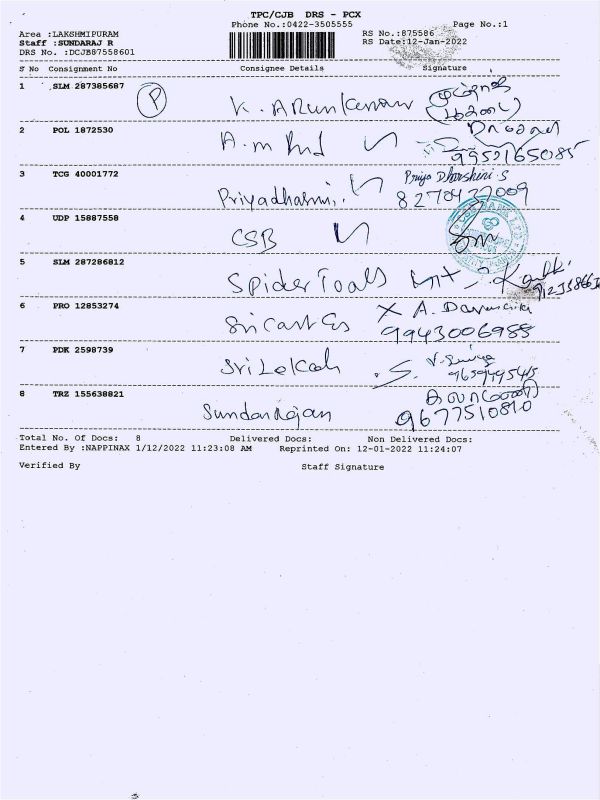 TPC/CJB DRS - PCX
Phone No.:0422-3505555
Page No.:1
Area :LAKSHMIPURAM
Staff :SUNDARAJ R
DRS No. :DCJB87558601
RS No.:875586
RS Date:12-Jan-2022
S No Consignment No Consignee Details Signature
1 SLM 287385687 P K. ARunkumar
2 POL 1872530 A.m
9952165085
3 TCG 40001772 Priyadharshini.
Priya Dharshini.S
8270437009
4 UDP 15887558 CSB
5 SLM 287286812 Spider Tools
6 PRO 12853274 Sri Cast Es
9943006985
7 PDK 2598739 Sri Lekah
8 TRZ 155638821 Sundarrajan
9677510810
Total No. Of Docs: 8 Delivered Docs: Non Delivered Docs:
Entered By :NAPPINAX 1/12/2022 11:23:08 AM Reprinted On: 12-01-2022 11:24:07
Verified By Staff Signature